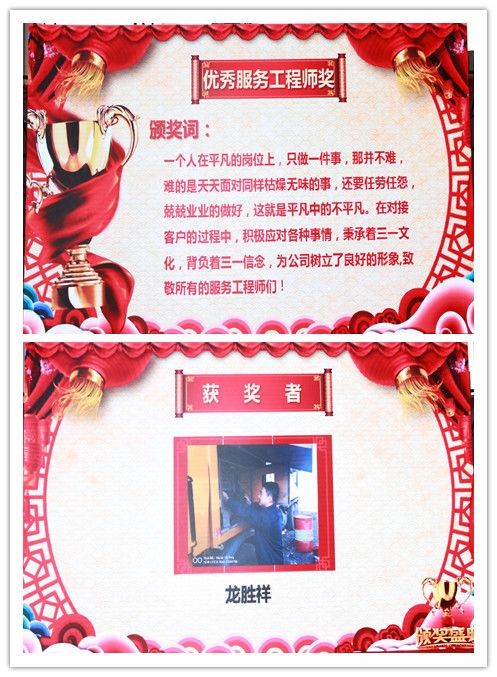 优秀服务工程师奖
颁奖词：
一个人在平凡的岗位上，只做一件事，那并不难，
难的是天天面对同样枯燥无味的事，还要任劳任怨，
兢兢业业的做好，这就是平凡中的不平凡。在对接
客户的过程中，积极应对各种事情，秉承着三一文
化，背负着三一信念，为公司树立了良好的形象,致
敬所有的服务工程师们！
获奖者
龙胜祥
颁奖盛典